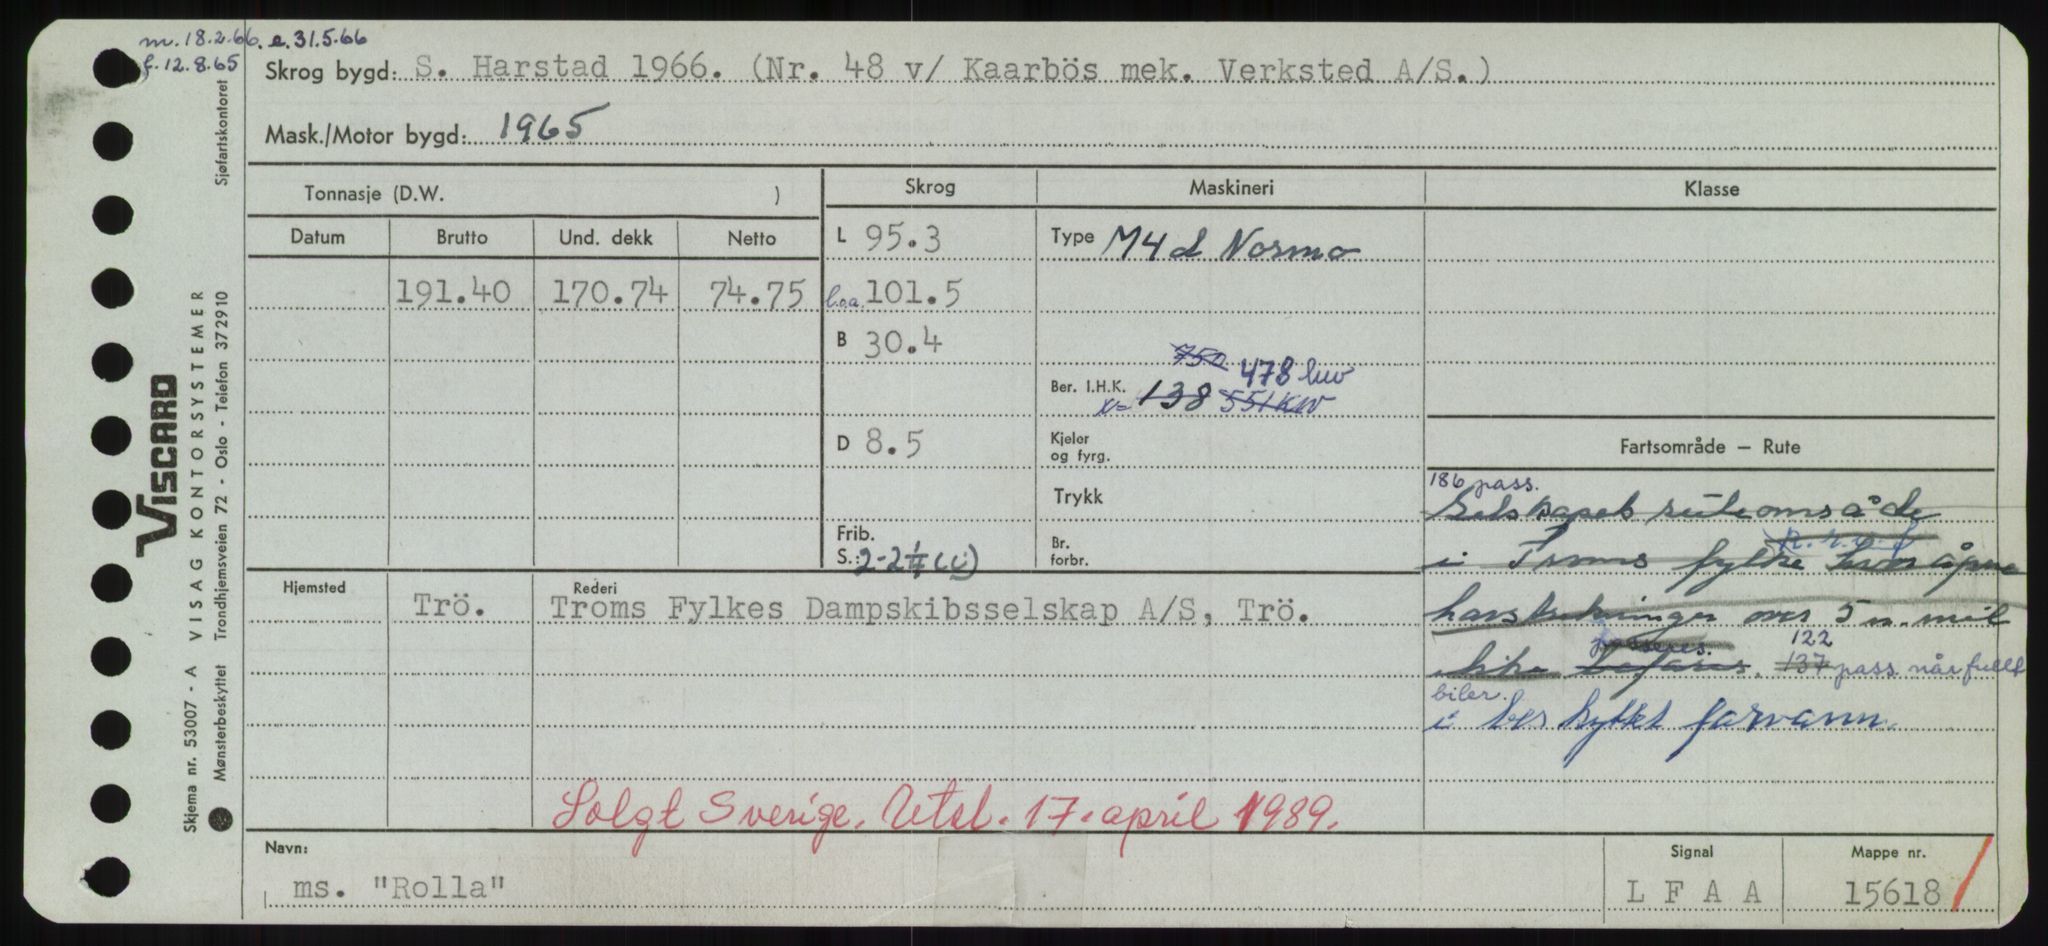 m. 18.2.66. e. 31.5.66
f. 12.8.65
Skrog bygd: S. Harstad 1966. (Nr. 48 v/ Kaarbös mek. Verksted A/S.)
Mask./Motor bygd: 1965
Tonnasje (D.W. )
Skrog
Maskineri
Klasse
Datum Brutto Und. dekk Netto
L 95.3
Type M4d Normo
191.40 170.74 74.75
l.o.a. 101.5
B 30.4
750 478 kw
Ber. I.H.K. 138 551 KW
D 8.5
Kjeler
og fyrg.
Fartsområde — Rute
Trykk
186 pass.
Selskapets ruteområde
Frib.
S.:
Br.
forbr.
i Troms fylke hvor åpne
havstrekninger over 5 n. mil
passeres. 122
ikke befares. 137 pass. når fullt
biler.
i beskyttet farvann.
Hjemsted Trö.
Rederi
Troms Fylkes Dampskibsselskap A/S, Trö.
Solgt Sverige. Utsl. 17. april 1989.
Navn:
ms. "Rolla"
Signal
L F A A
Mappe nr.
15618
Viscard
VISAG KONTORSYSTEMER
Skjema nr. 53007 - A
Mønsterbeskyttet Trondhjemsveien 72 - Oslo - Telefon 372910
Sjøfartskontoret